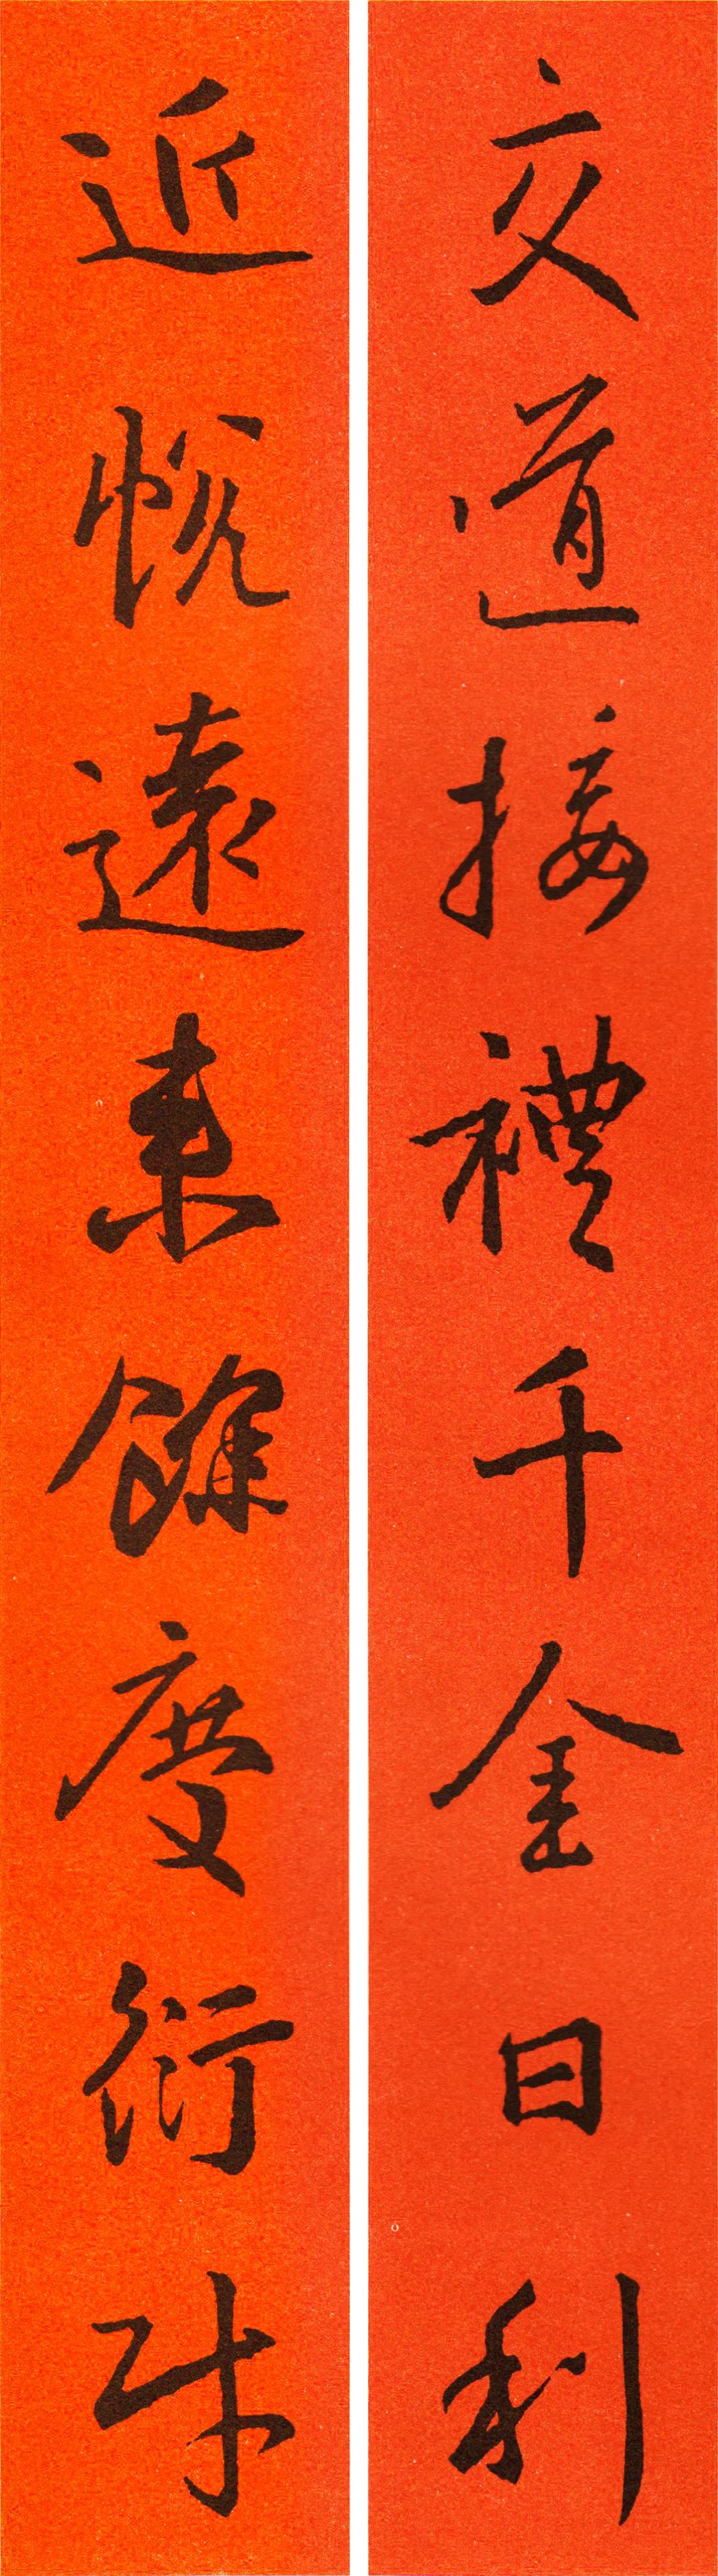 交道接禮千金日利
近悅遠來餘度衍財